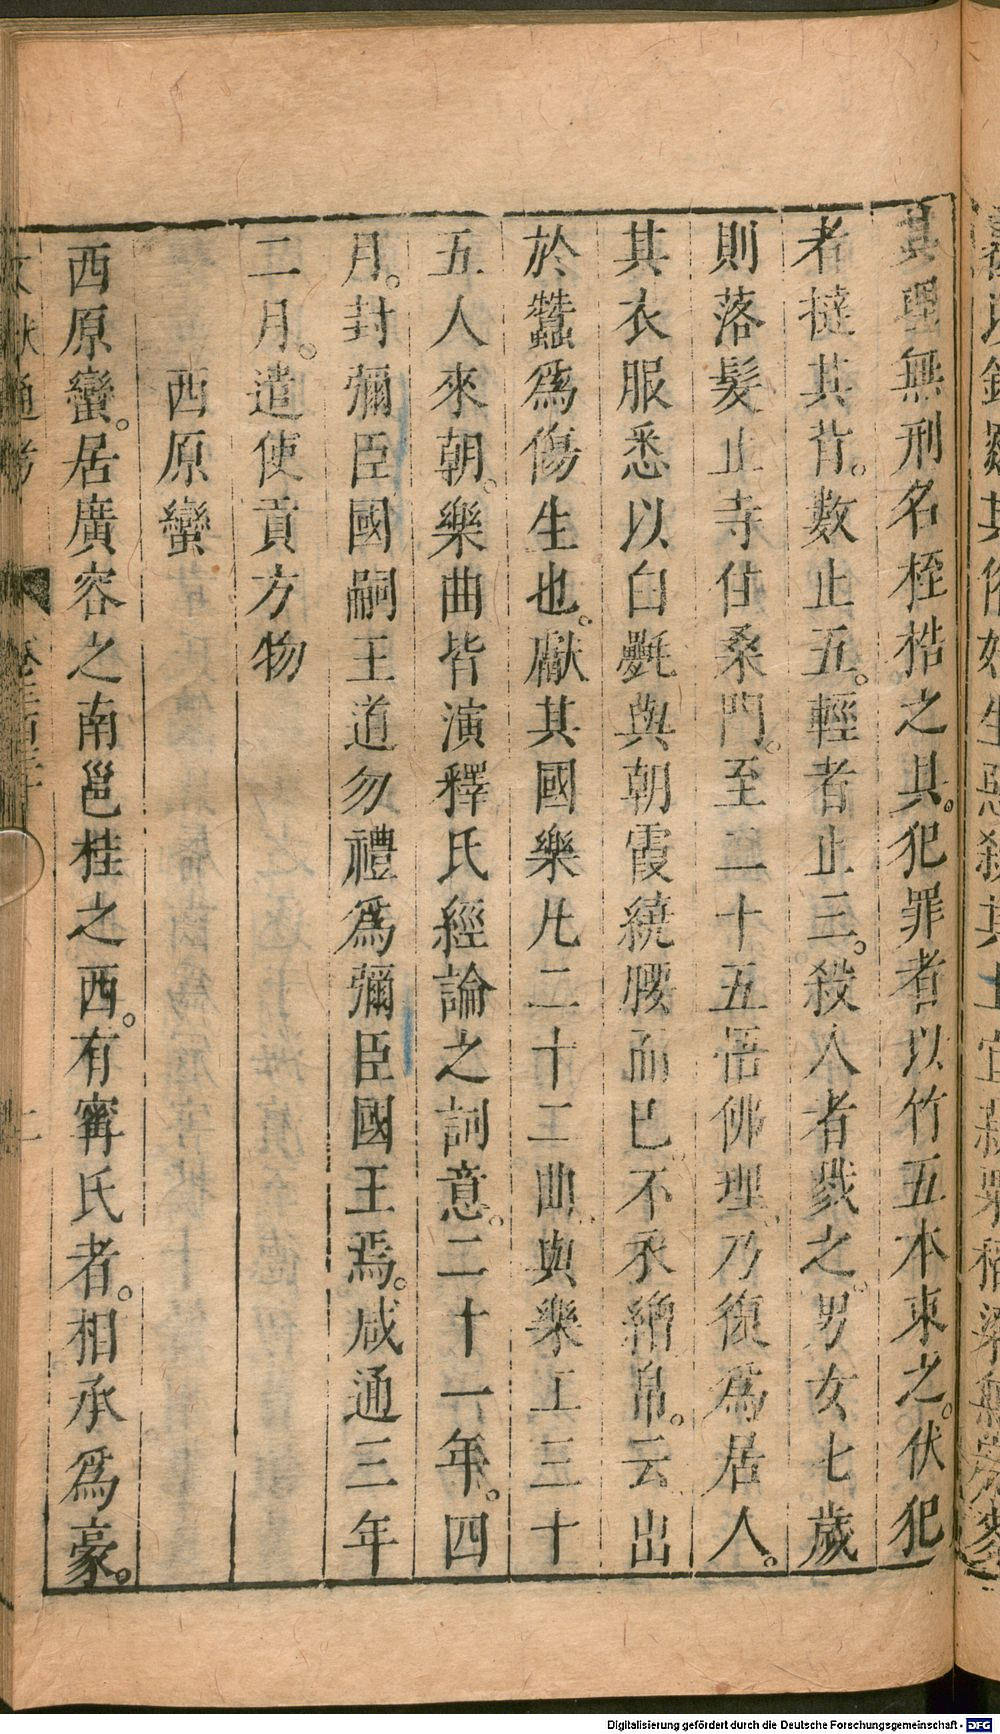 其理無刑名桎梏之具。犯罪者以竹五本束之。伏犯
者撻其背。數止五。輕者止三。殺人者戮之。男女七歲
則落髮止寺住桑門。至二十五悟佛理。乃復爲居人。
其衣服悉以白氎與朝霞繞腰而已。不衣繒帛。云出
於蠶爲傷生也。獻其國樂凡二十二曲。與樂工三十
五人來朝。樂曲皆演釋氏經論之詞意。二十一年。四
月。封彌臣國嗣王道勿禮爲彌臣國王焉。咸通三年
二月。遣使貢方物
西原蠻
西原蠻。居廣容之南邕桂之西。有甯氏者。相承爲豪。
文獻通考
Digitalisierung gefördert durch die Deutsche Forschungsgemeinschaft - DFG